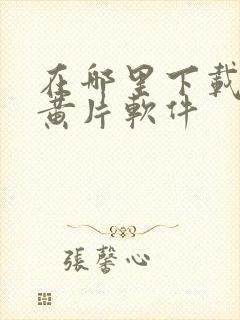 在哪里下載
黄片軟件
張馨心